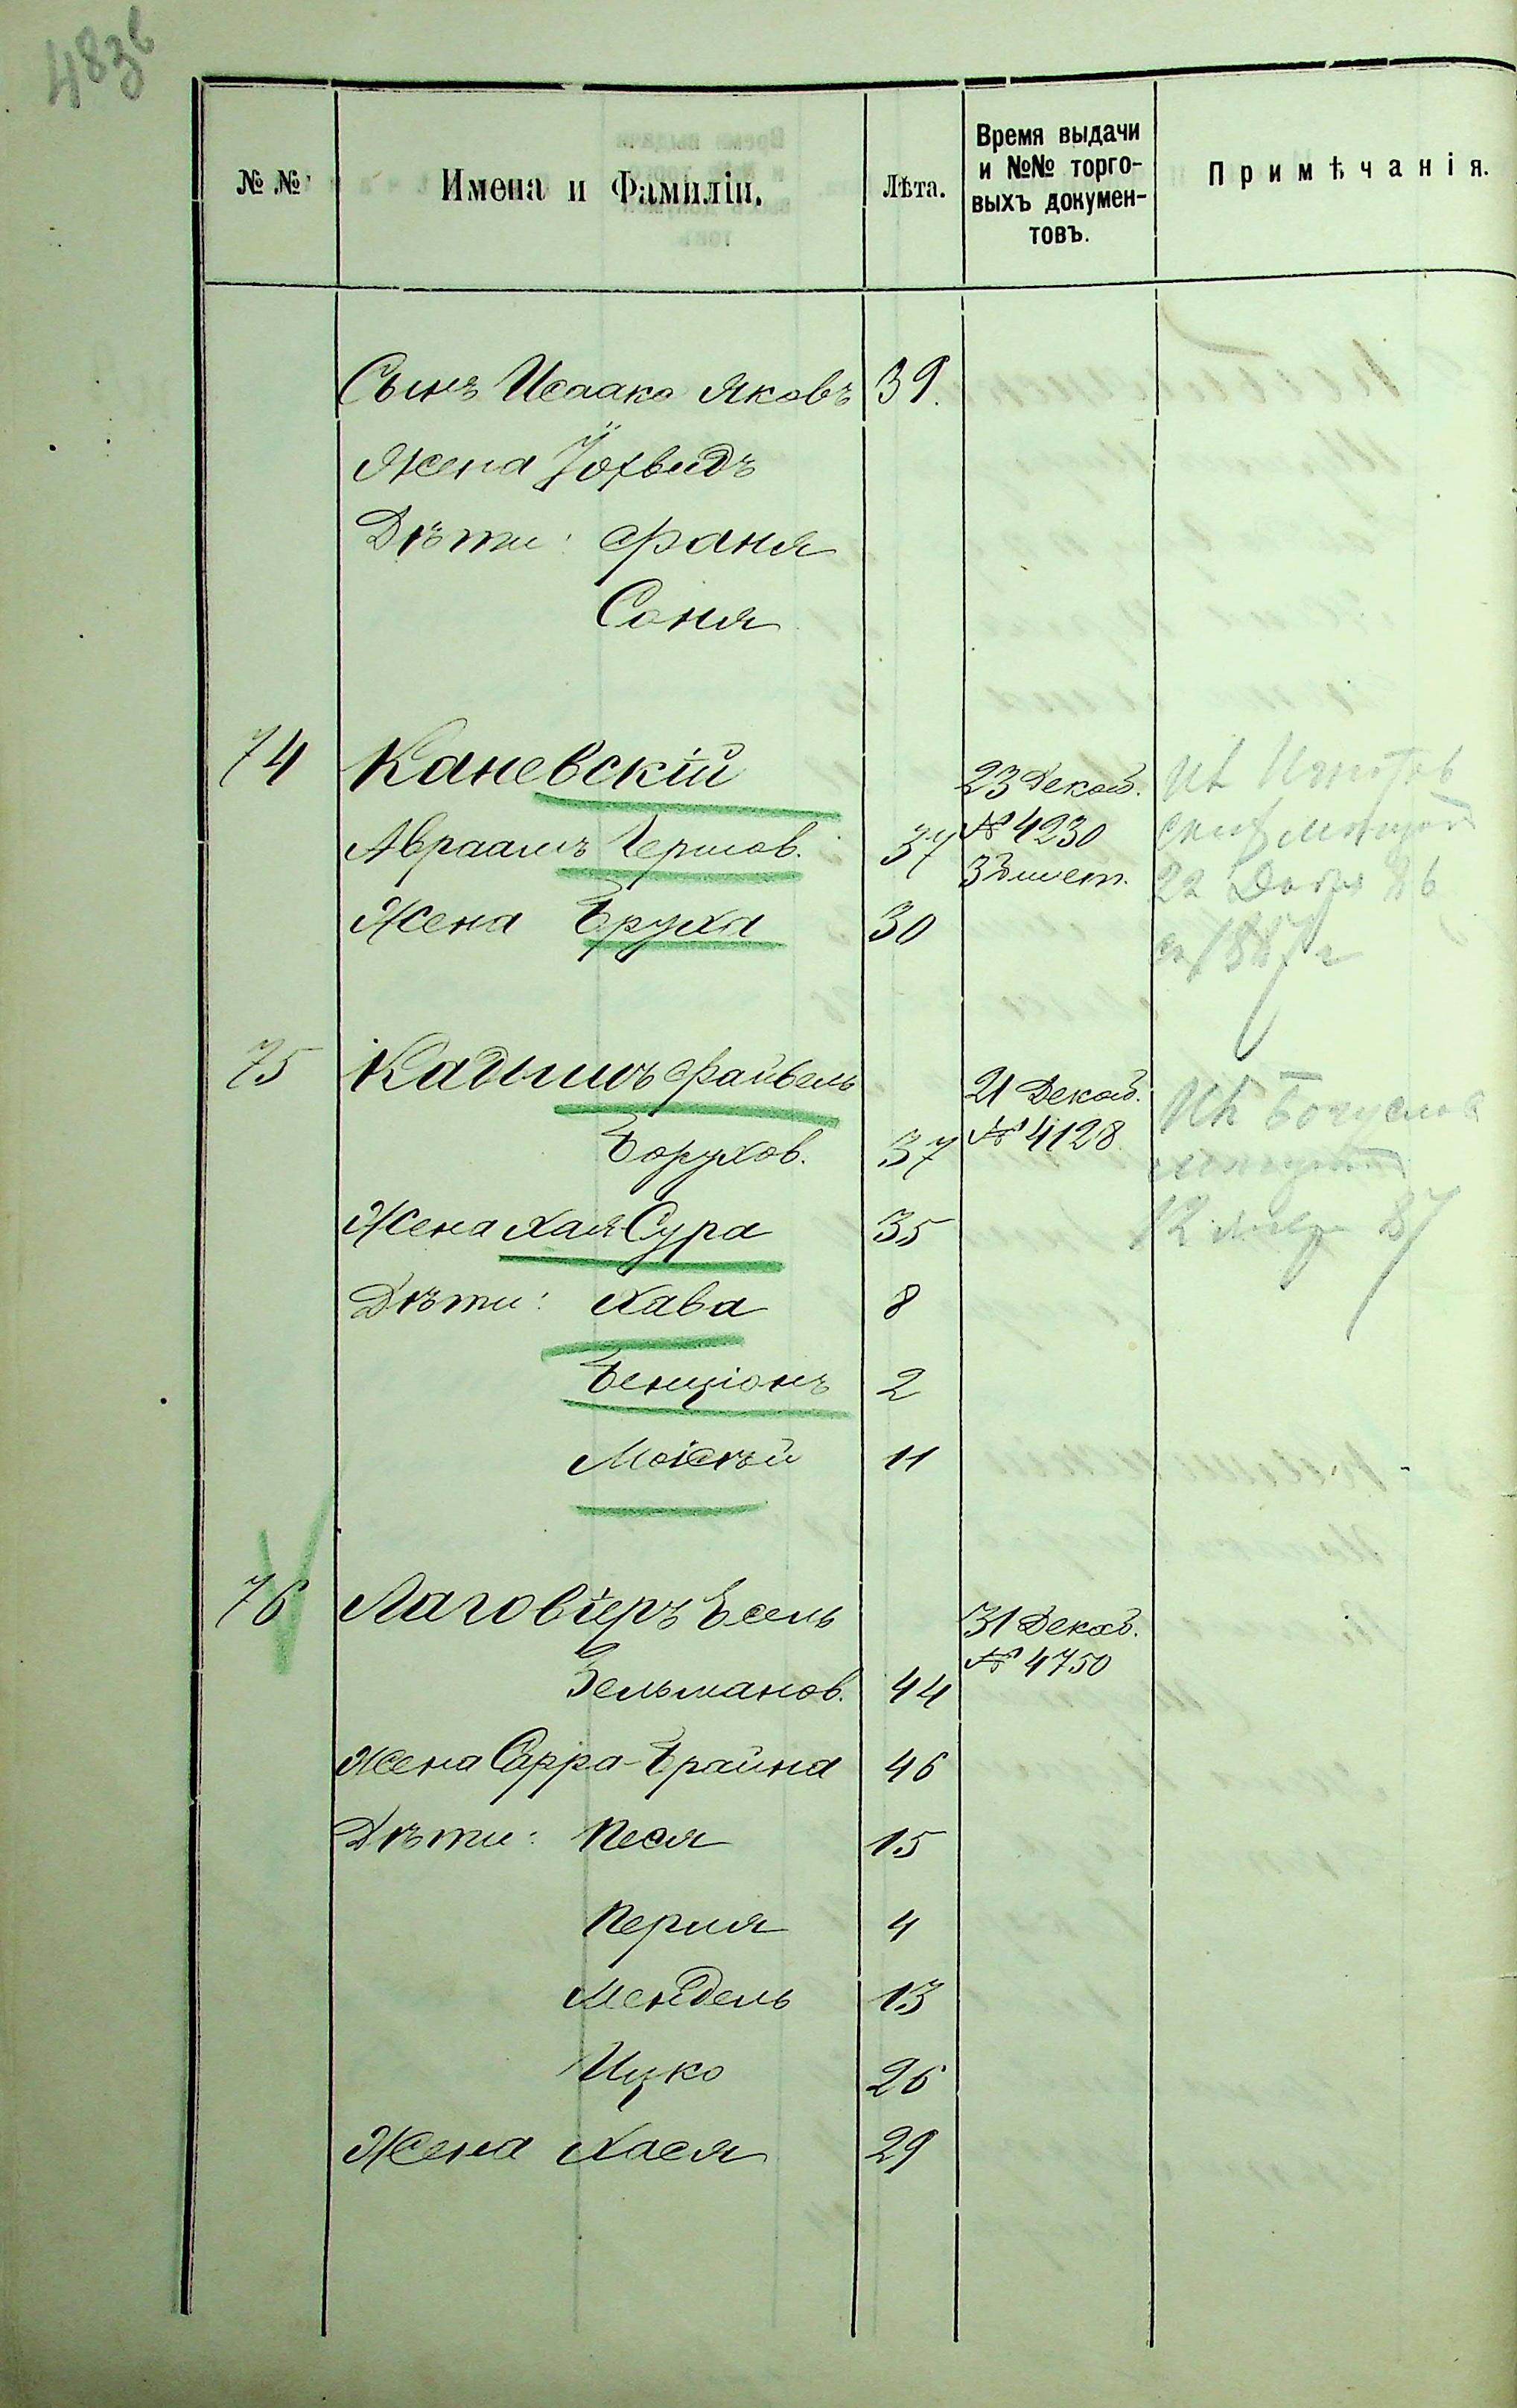 483б
№ №
Имена и Фамиліи.
Лѣта.
Время выдачи
и №№ торго-
выхъ докумен-
товъ.
Примѣчанія.
Сынъ Исаакъ Яковъ 39.
Жена Іохвидъ
Дѣти: Фаня
Соня
74 Каневскій 23 Декаб.
Авраамъ Гершов. 37 № 4230
Жена Бруха 30
22 86
1887 г
75 Кадишъ Файвель 21 Декаб.
Борухов. 37 № 4128
Жена Хая Сура 35
Дѣти: Хава 8
Бенціонъ 2
Моісѣй 11
12 87
76 Лаговіеръ Іосель 31 Декаб.
Зельманов. 44 № 4750
Жена Сарра-Брайна 46
Дѣти: Песя 15
Перля 4
Мендель 13
Ицко 26
Жена Хася 29